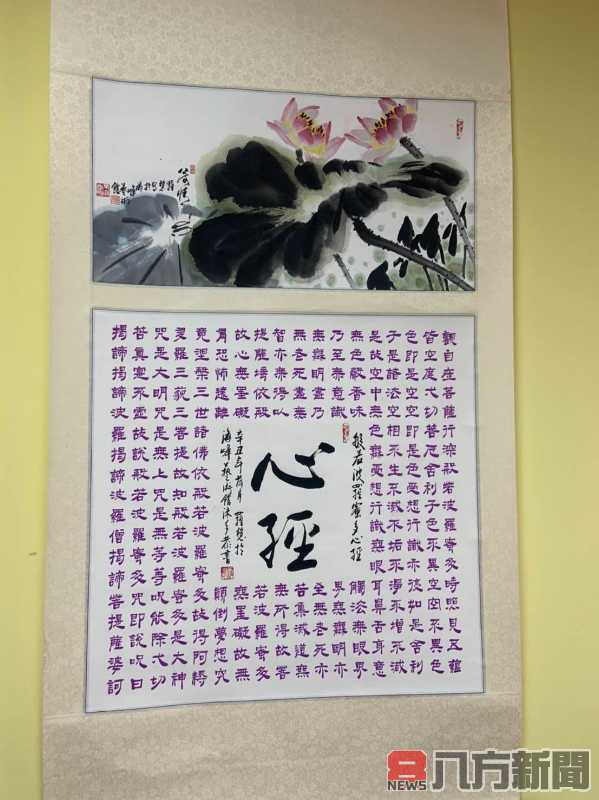 觀自在菩薩行深般若波羅蜜多時照見五蘊
皆空度一切苦厄舍利子色不異空空不異色
色即是空空即是色受想行識亦復如是舍利
子是諸法空相不生不滅不垢不淨不增不減
是故空中無色無受想行識無眼耳鼻舌身意
無色聲香味
觸法無眼界
乃至無意識
界無無明亦
無無明盡乃
至無老死亦
無老死盡無
苦集滅道無
智亦無得以
無所得故菩
提薩埵依般
若波羅蜜多
故心無罣礙
無罣礙故無
有恐怖遠離
顛倒夢想究
竟涅槃三世諸佛依般若波羅蜜多故得阿耨
多羅三藐三菩提故知般若波羅蜜多是大神
咒是大明咒是無上咒是無等等咒能除一切
苦真實不虛故說般若波羅蜜多咒即說咒曰
揭諦揭諦波羅揭諦波羅僧揭諦菩提薩婆訶
般若波羅蜜多心經
心經
辛丑年荷月於
海峰藝術館沐手恭書
NEWS 八方新聞